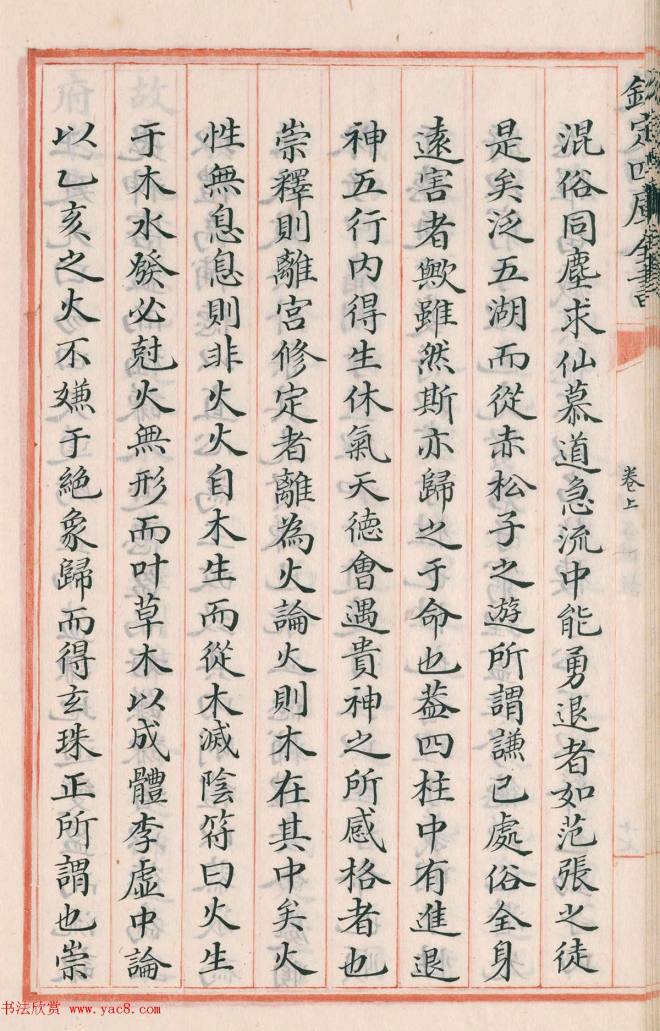 欽定四庫全書
卷上
混俗同塵求仙慕道急流中能勇退者如范張之徒
是矣泛五湖而從赤松子之遊所謂謙已處俗全身
遠害者歟雖然斯亦歸之于命也葢四柱中有進退
神五行内得生休氣天德會遇貴神之所感格者也
崇釋則離宫修定者離為火論火則木在其中矣火
性無息息則非火火自木生而從木滅陰符曰火生
于木水發必尅火無形而叶草木以成體李虚中論
以乙亥之火不嫌于絶象歸而得玄珠正所謂也崇
书法欣赏 www.yac8.com